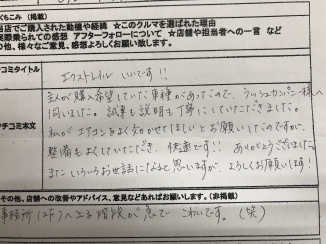 くちこみ（掲載）
当店でご購入された動機や経緯 ☆このクルマを選ばれた理由
実際乗られての感想 アフターフォローについて ☆店舗や担当者への一言 など
その他、様々なご意見、感想よろしくお願い致します。
コミタイトル
エクストレイル いいです!!
クチコミ本文
主人が購入希望していた車種があったので、ラッシュカンパニー様へ
伺いました。試乗も説明も丁寧にしていただきました。
私が エアコンをよく効かせてほしいとお願いしていたのですが、
整備もよくしていただき、快適です!! ありがとうございました。
またいろいろお世話になると思いますが、よろしくお願いします!
その他、店舗への改善やアドバイス、意見などあればお願いします。（非掲載）
事務所（2F）へ上る階段が急で こわいです。（笑）